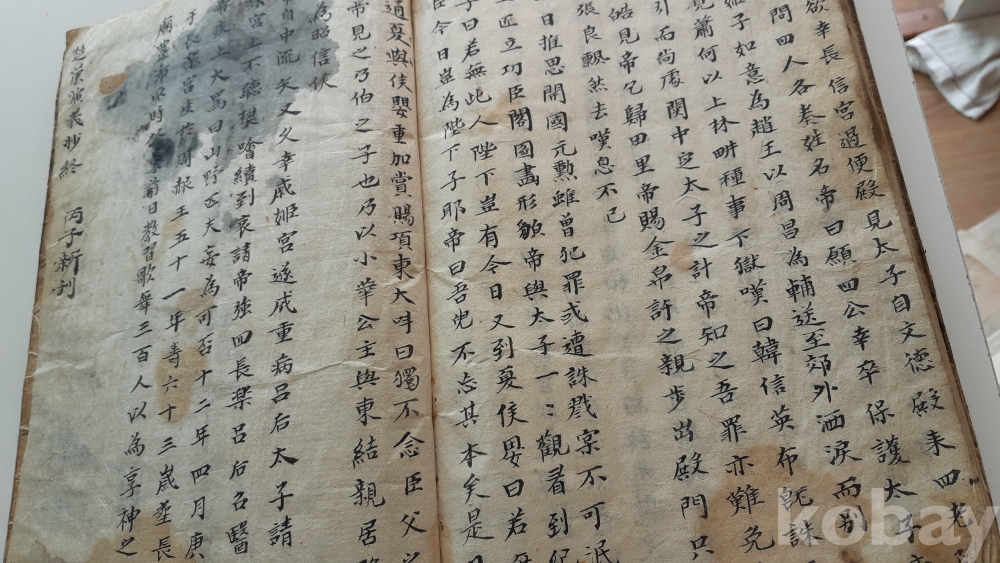 欲幸長信宮過便殿見太子自文德殿来四老
問四人各奏姓名帝曰願四公幸卒保護太子
姬子如意為趙王以周昌為輔送至郊外洒淚而别
見蕭何以上林畊種事下獄嘆曰韓信英布既誅
引而尚處関中定太子之計帝知之吾罪亦難免
皓見帝乞歸田里帝賜金帛許之親步出殿門只
張良飄然去嘆息不已
日推思開國元勲雖曾犯罪或遭誅戮宲不可泯
匠立功臣閣圖畵形貌帝與太子一〻觀看到紀
子曰若無此人陛下豈有今日又到戛侯嬰曰若無
臣今日豈為陛下子耶帝曰吾児不忘其本矣是
通戛與侯嬰重加賞賜項東大呌曰獨不念臣父
帝見之乃伯之子也乃以小華公主與東結親居
為昭信侯
自中流矢又幸戚姬宮遂成重病吕后太子請
宮上不聽樊噲續到哀請帝強回長楽吕后召醫
上大罵曰山野匹夫妄為可否十二年四月庚
于長楽宮生於周赧王五十一年壽六十三歲塟長
前日教習歌舞三百人以為享神之
楚漢演義抄終 丙子新刊
kobay